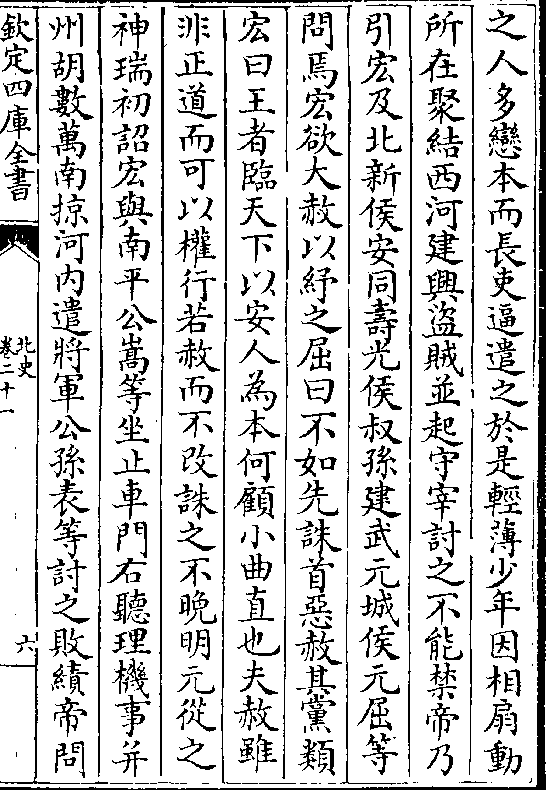 之人多戀本而長吏逼遣之於是輕薄少年因相扇動
所在聚結西河建興盜賊並起守宰討之不能禁帝乃
引宏及北新侯安同壽光侯叔孫建武元城侯元屈等
問焉宏欲大赦以紓之屈曰不如先誅首惡赦其黨類
宏曰王者臨天下以安人為本何顧小曲直也夫赦雖
非正道而可以權行若赦而不改誅之不晚明元從之
神瑞初詔宏與南平公嵩等坐止車門右聽理機事并
州胡數萬南掠河內遣將軍公孫表等討之敗績帝問
欽定四庫全書
北史
卷二十一
六